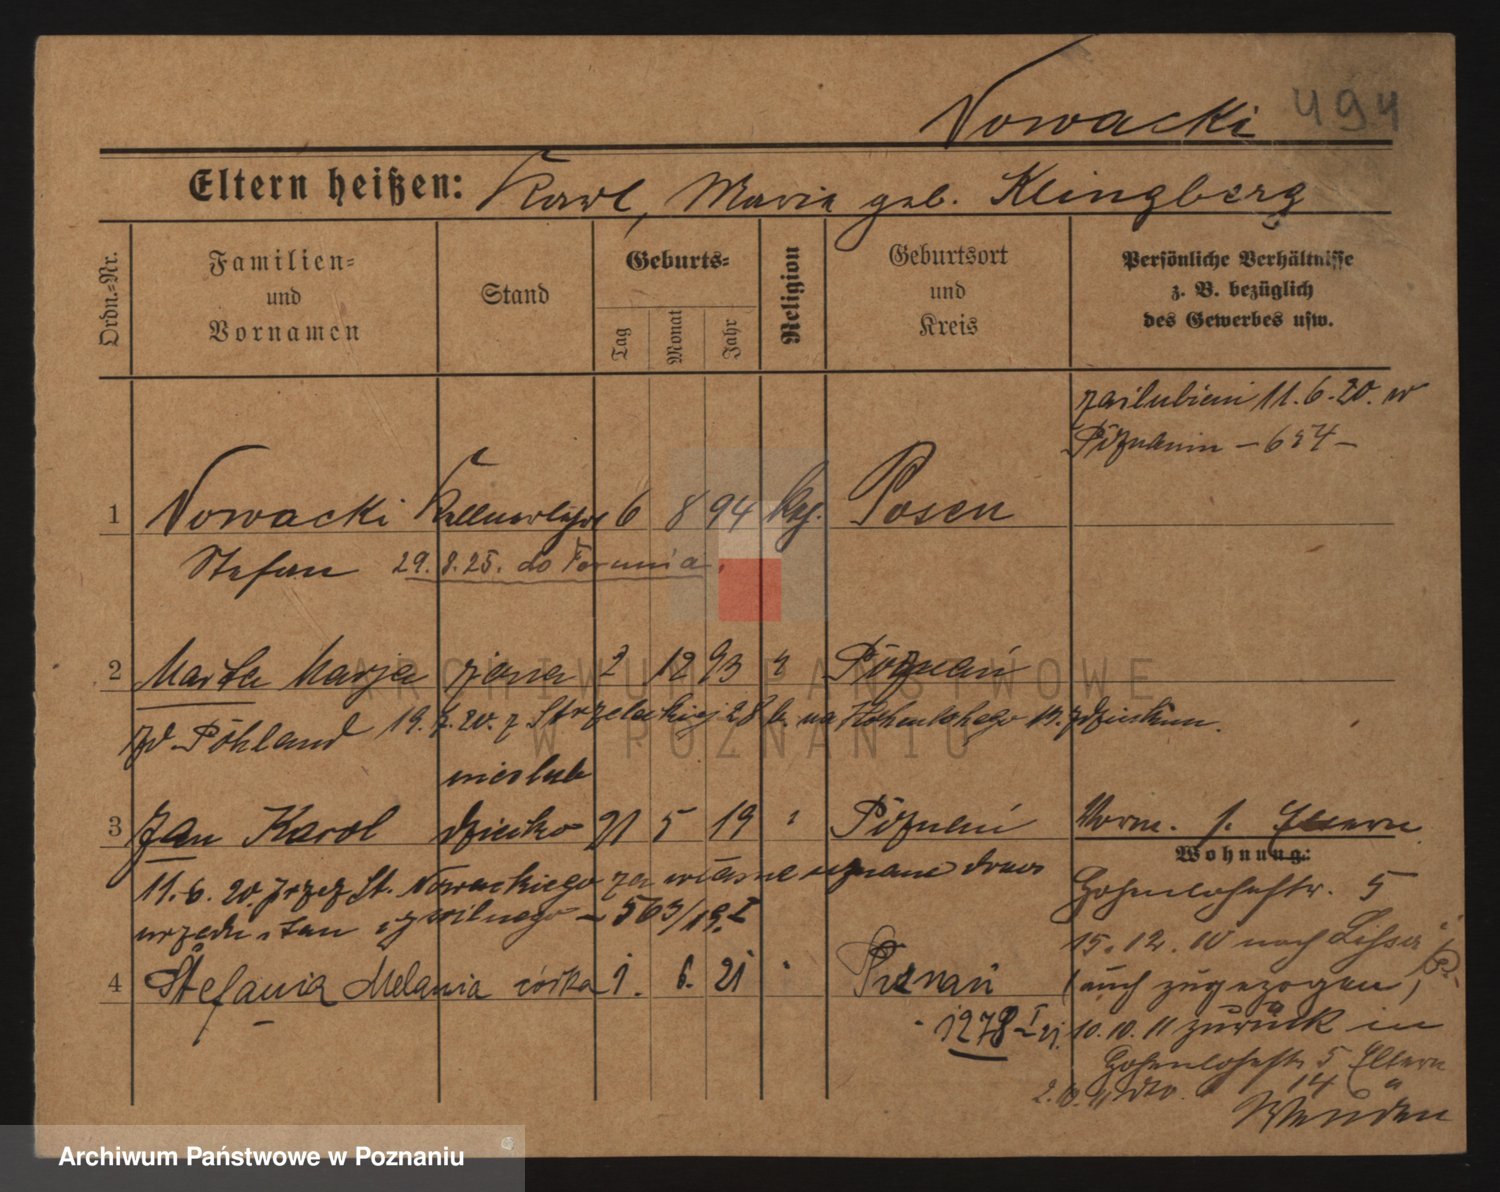 Nowacki 494
Eltern heißen: Karl, Maria geb. Klingberg
Ordn.-Nr.
Familien-
und
Vornamen
Stand
Geburts-
Tag
Monat
Jahr
Religion
Geburtsort
und
Kreis
Persönliche Verhältnisse
z. B. bezüglich
des Gewerbes usw.
zaślubieni 11.6.20. w
Poznaniu – 654 –
1 Nowacki 6 8 94 Posen
Stefan 29.8.25. do Torunia.
2 Marta Marja żona 2 12 93 " Poznań
zd. Pöhland 19.7.20. z Strzeleckiej 28 na Hohenlohego 13.
nieślub
3 Jan Karol dziecko 21 5 19 " Poznań
Vorm. s. Eltern
Wohnung:
11.6.20. przez St. Nowackiego za własne uznane
urzędu stan cywilnego – 563/19.I
Hohenlohestr. 5
15.12.10 nach Lissa
4 Stefania Melania córka 1. 6. 21 " Poznań
(auch zugezogen)
1278 I 21.
10.10.11 zurück in
Hohenlohestr 5 Eltern
14 "
dto.
Wenden
ARCHIWUM PAŃSTWOWE
W POZNANIU
Archiwum Państwowe w Poznaniu